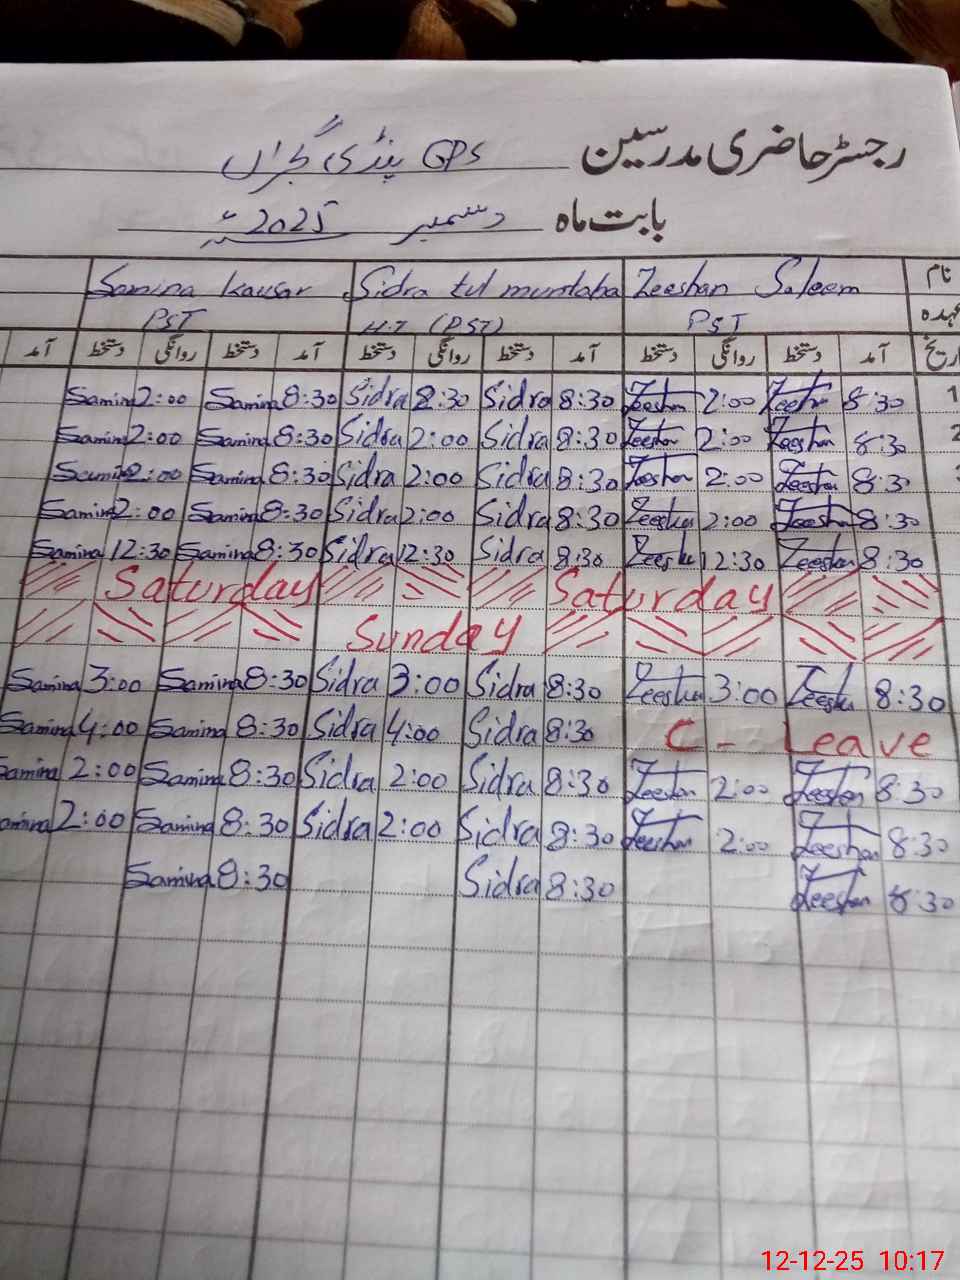 رجسٹر حاضری مدرسین GPS پنڈی گجراں
بابت ماہ دسمبر 2025ء
نام Zeeshan Saleem Sidra tul muntaha Samina kausar
عہدہ PST H.T (PST) PST
تاریخ آمد دستخط روانگی دستخط آمد دستخط روانگی دستخط آمد دستخط روانگی دستخط آمد
1 8:30 Zeeshan 2:00 Zeeshan 8:30 Sidra 2:30 Sidra 8:30 Samina 2:00 Samina
2 8:30 Zeeshan 2:00 Zeeshan 8:30 Sidra 2:00 Sidra 8:30 Samina 2:00 Samina
8:30 Zeeshan 2:00 Zeeshan 8:30 Sidra 2:00 Sidra 8:30 Samina 2:00 Samina
8:30 Zeeshan 2:00 Zeeshan 8:30 Sidra 2:00 Sidra 8:30 Samina 2:00 Samina
8:30 Zeeshan 12:30 Zeeshan 8:30 Sidra 12:30 Sidra 8:30 Samina 12:30 Samina
Saturday Saturday
Sunday
8:30 Zeeshan 3:00 Zeeshan 8:30 Sidra 3:00 Sidra 8:30 Samina 3:00 Samina
C- Leave 8:30 Sidra 4:00 Sidra 8:30 Samina 4:00 Samina
8:30 Zeeshan 2:00 Zeeshan 8:30 Sidra 2:00 Sidra 8:30 Samina 2:00 Samina
8:30 Zeeshan 2:00 Zeeshan 8:30 Sidra 2:00 Sidra 8:30 Samina 2:00 Samina
8:30 Zeeshan 8:30 Sidra 8:30 Samina
12-12-25 10:17